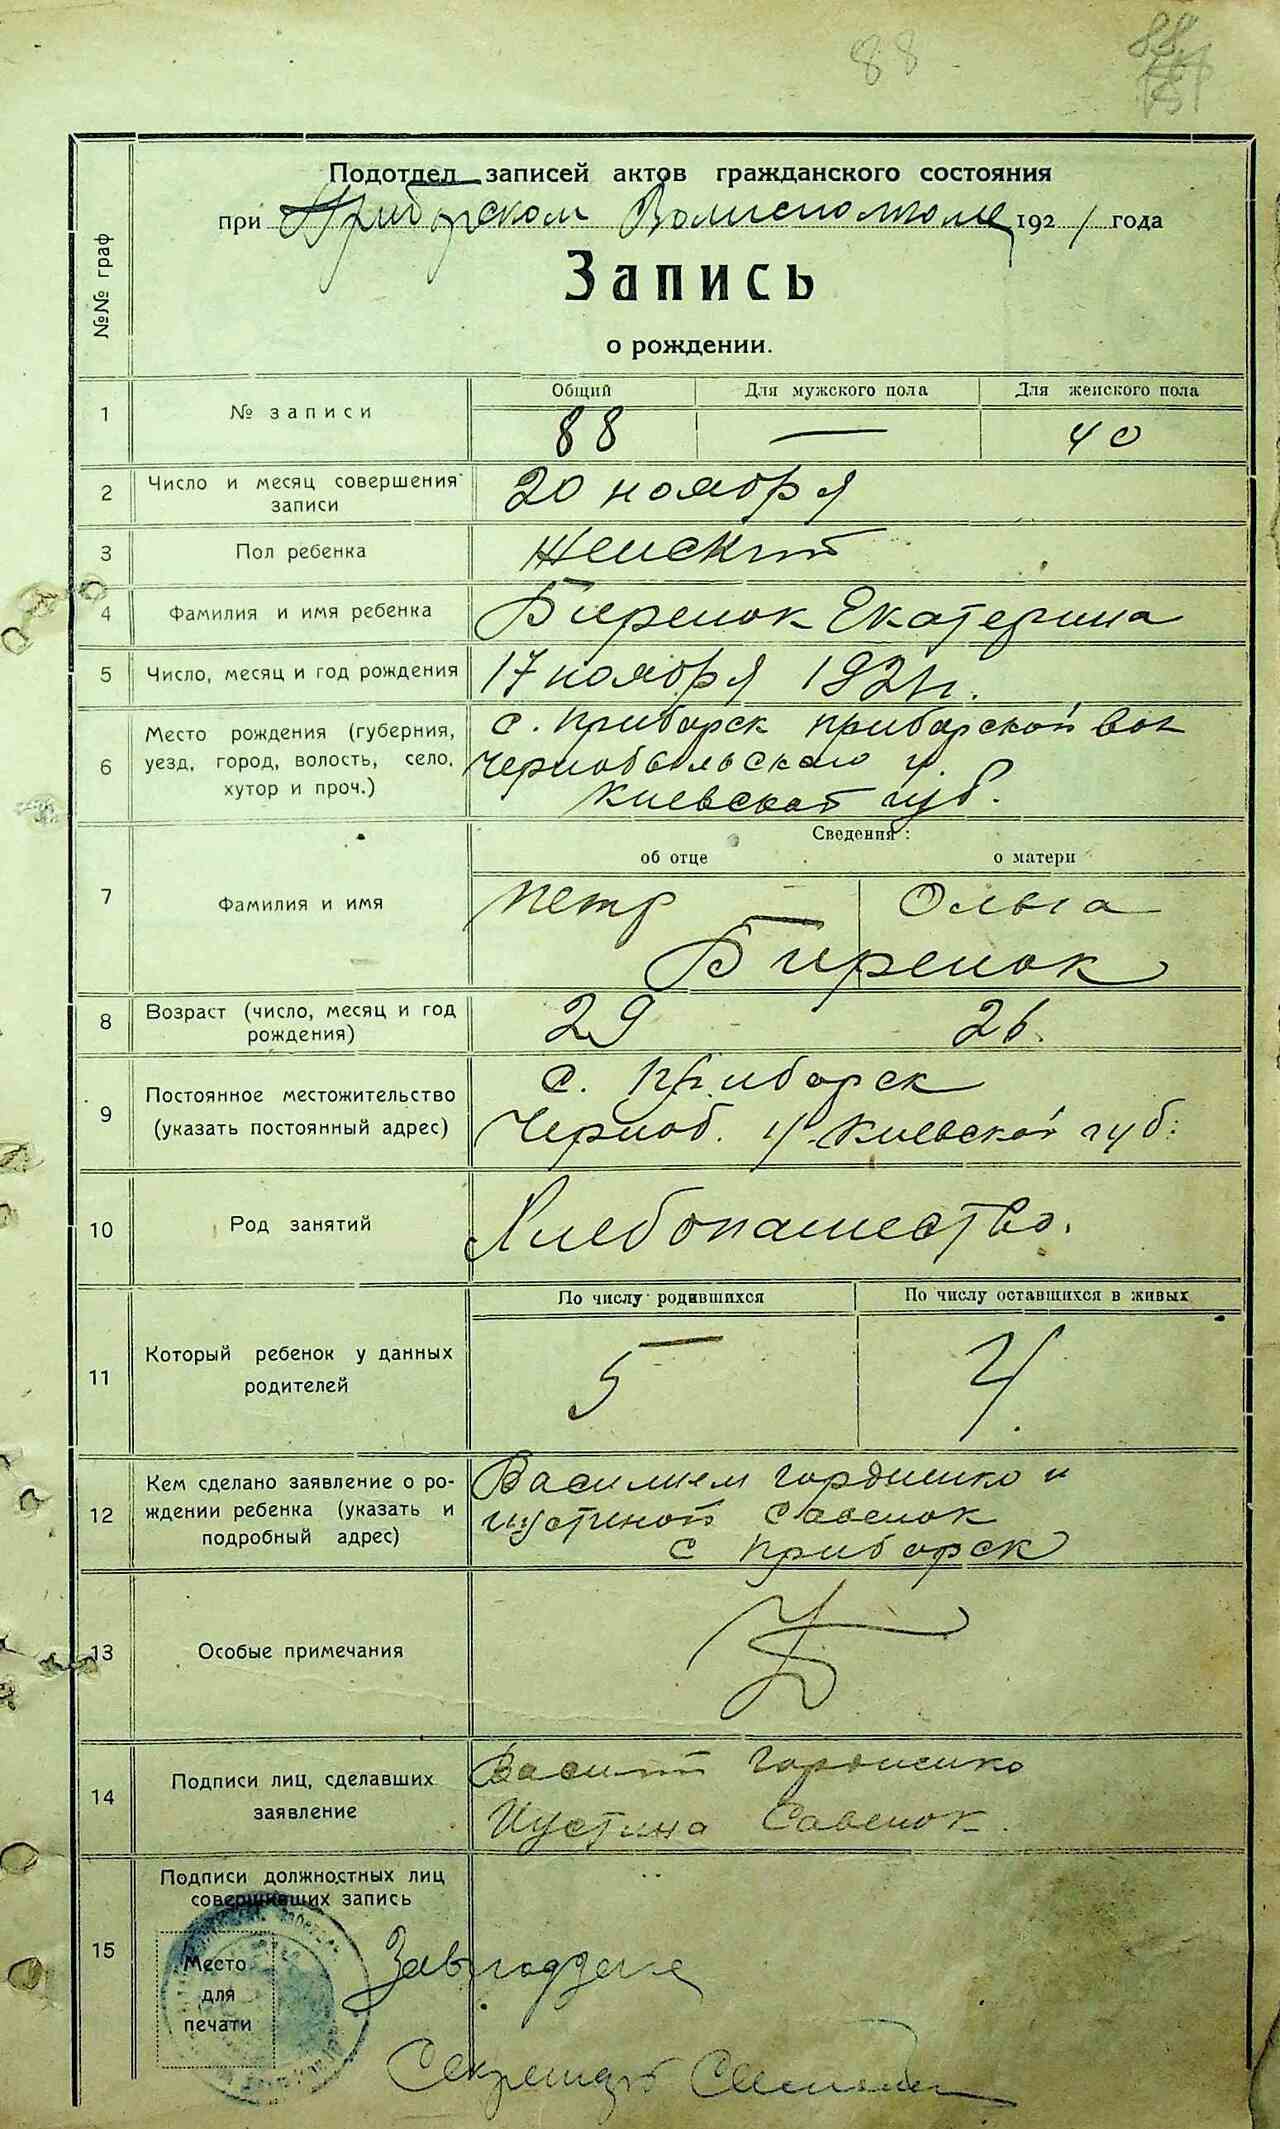 88
88
Подотдел записей актов гражданского состояния
при Приборском Волисполкоме 1921 года
Запись
о рождении.
№№ граф
Общий Для мужского пола Для женского пола
1 № записи 88 — 40
2 Число и месяц совершения записи 20 ноября
3 Пол ребенка Женский
4 Фамилия и имя ребенка Биренок Екатерина
5 Число, месяц и год рождения 17 ноября 1921 г.
6 Место рождения (губерния, уезд, город, волость, село, хутор и проч.)
с. Приборск Приборской вол
Чернобыльского у.
Киевской губ.
Сведения:
об отце о матери
7 Фамилия и имя Петр — Ольга
Биренок
8 Возраст (число, месяц и год рождения) 29 26.
9 Постоянное местожительство (указать постоянный адрес)
с. Приборск
Черноб. у. Киевской губ.
10 Род занятий Хлебопашество.
По числу родившихся По числу оставшихся в живых
11 Который ребенок у данных родителей 5 4
12 Кем сделано заявление о рождении ребенка (указать и подробный адрес)
Василием Гордиенко и
Иустиной Савенок
с Приборск
13 Особые примечания
14 Подписи лиц, сделавших заявление
Василий Гордиенко
Иустина Савенок.
15 Подписи должностных лиц совершивших запись
Место
для
печати
Секретарь